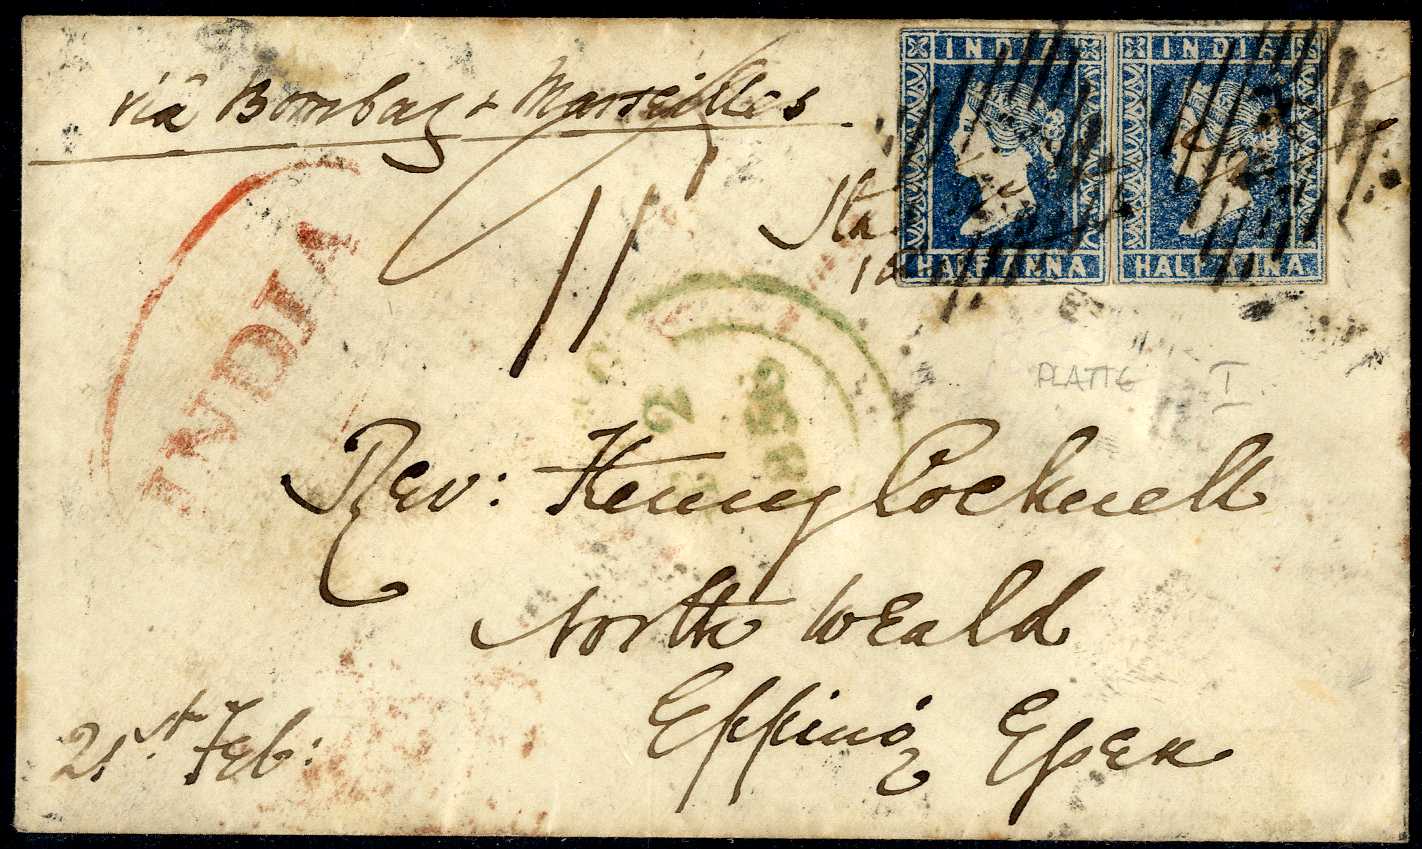 viâ Bombay & Marseilles
INDIA INDIA
HALF ANNA HALF ANNA
INDIA
2
PLATTE I
Rev: Henry Cocknell
North Weald
Epping Essex
21st Feb: